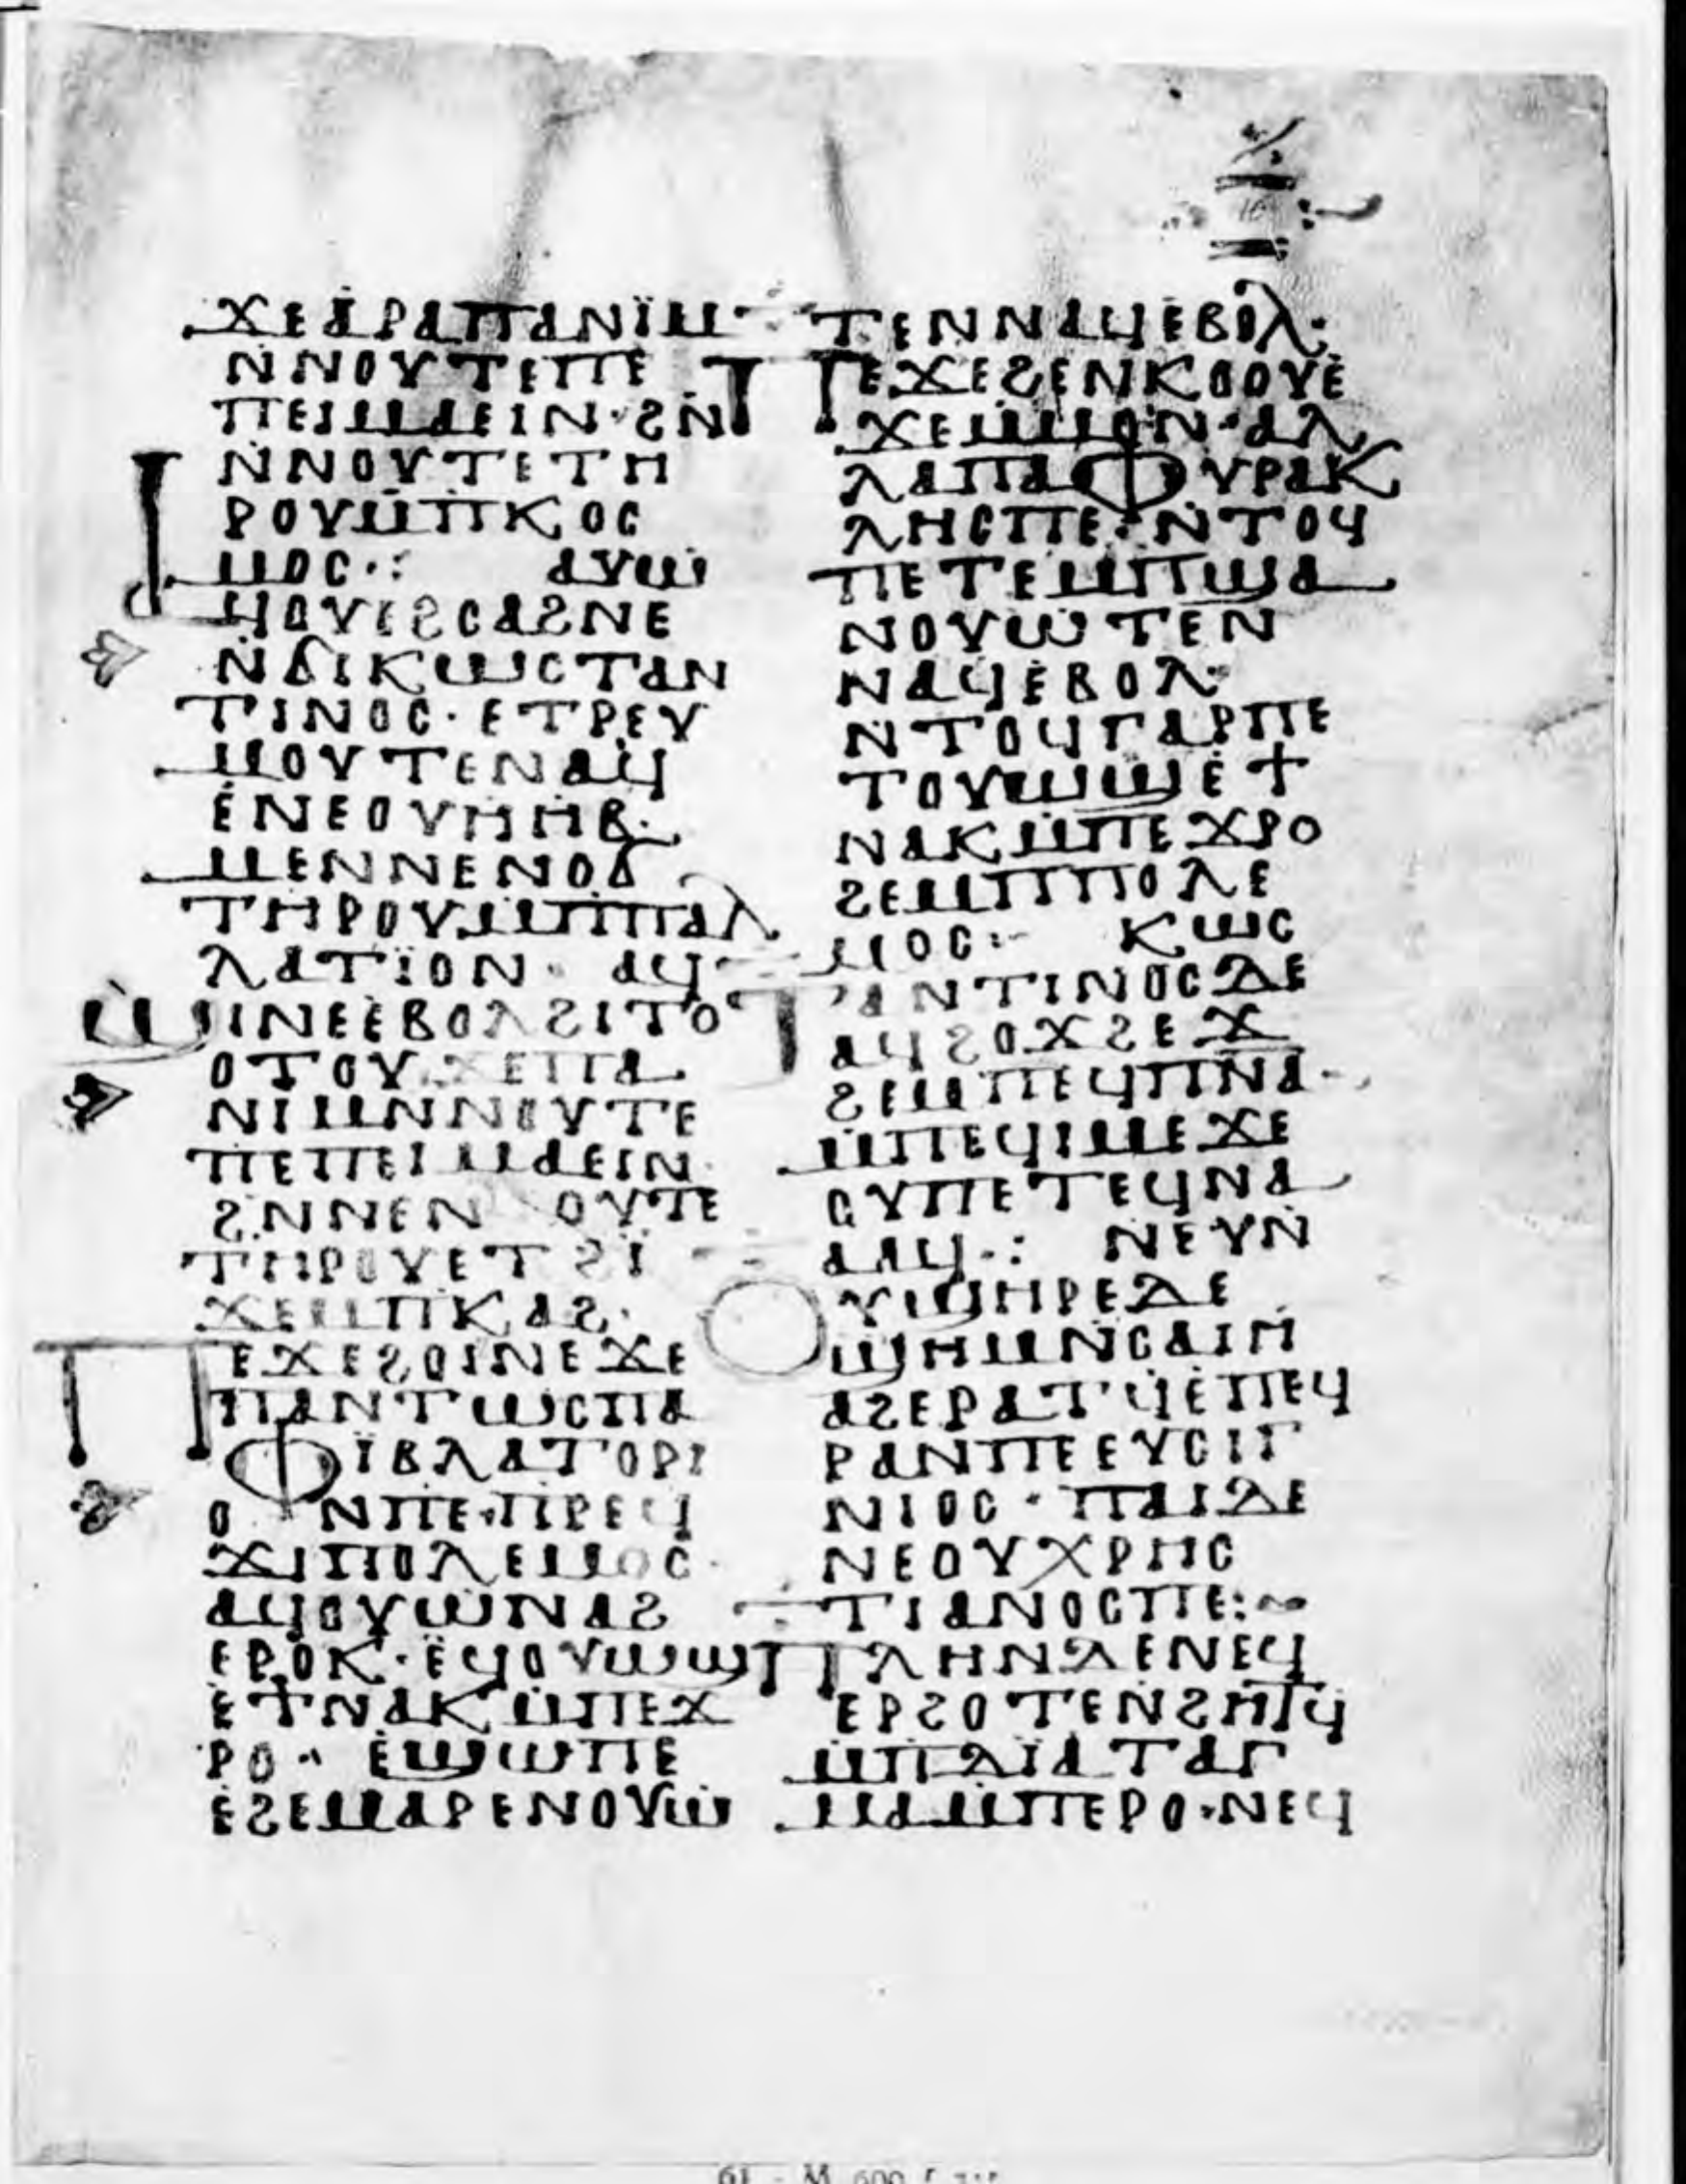 ϫⲉⲁⲣⲁⲡⲁⲛⲓ̈ⲙ
ⲛ̇ⲛⲟⲩⲧⲉⲡⲉ
ⲡⲉⲓⲙⲁⲉⲓⲛ· ϩⲛ̇
ⲛ̇ⲛⲟⲩⲧⲉⲧⲏ
ⲣⲟⲩⲙ̇ⲡⲕⲟⲥ
ⲙⲟⲥ·: ⲁⲩⲱ
ϥⲟⲩⲉϩⲥⲁϩⲛⲉ
ⲛ̇ϭⲓⲕⲱⲥⲧⲁⲛ
ⲧⲓⲛⲟⲥ· ⲉⲧⲣⲉⲩ
ⲙⲟⲩⲧⲉⲛⲁϥ
ⲉ̇ⲛⲉⲟⲩⲏⲏⲃ·
ⲙⲉⲛⲛⲉⲛⲟϭ
ⲧⲏⲣⲟⲩⲙ̇ⲡⲡⲁⲗ
ⲗⲁⲧⲓ̈ⲟⲛ· ⲁϥ
ϣⲓⲛⲉⲉ̇ⲃⲟⲗϩⲓⲧⲟ
ⲟⲧⲟⲩ· ϫⲉⲡⲁ
ⲛⲓⲙⲛ̇ⲛⲟⲩⲧⲉ
ⲡⲉⲡⲉⲓⲙⲁⲉⲓⲛ·
ϩⲛ̇ⲛⲉⲛⲟⲩⲧⲉ
ⲧⲏⲣⲟⲩⲉⲧϩⲓ̈
ϫⲉⲙⲡⲕⲁϩ·
ⲡⲉϫⲉϩⲟⲓⲛⲉϫⲉ
ⲡⲁⲛⲧⲱⲥⲡⲁ
ⲫⲓ̈ⲃⲗⲁⲧⲟⲣⲓ
ⲟⲛⲡⲉ·ⲡⲣⲉϥ
ϫⲓⲡⲟⲗⲉⲙⲟⲥ·
ⲁϥⲟⲩⲱⲛⲁϩ
ⲉⲣⲟⲕ· ⲉ̇ϥⲟⲩⲱϣ
ⲉ̇ϯⲛⲁⲕⲙ̇ⲡⲉϫ
ⲣⲟ· ⲉ̇ϣⲱⲡⲉ
ⲉ̇ϩⲉⲙⲁⲣⲉⲛⲟⲩⲱ
ⲧⲉⲛⲛⲁϥⲉ̇ⲃⲟⲗ:
ⲡⲉϫⲉϩⲉⲛⲕⲟⲟⲩⲉ̇
ϫⲉⲙⲙⲟⲛ· ⲁⲗ
ⲗⲁⲡⲁⲫⲩⲣⲁⲕ
ⲗⲏⲥⲡⲉ· ⲛ̇ⲧⲟϥ
ⲡⲉⲧⲉⲙⲡϣⲁ
ⲛⲟⲩⲱⲧⲉⲛ
ⲛⲁϥⲉ̇ⲃⲟⲗ·
ⲛ̇ⲧⲟϥⲅⲁⲣⲡⲉ
ⲧⲟⲩⲱϣⲉ̇ϯ
ⲛⲁⲕⲙ̇ⲡⲉϫⲣⲟ
ϩⲉⲙⲡⲡⲟⲗⲉ
ⲙⲟⲥ:· ⲕⲱⲥ
ⲧⲁⲛⲧⲓⲛⲟⲥⲇⲉ
ⲁϥϩⲟϫϩⲉϫ
ϩⲉⲙⲡⲉϥⲡⲛⲁ·
ⲙ̇ⲡⲉϥⲓⲙⲉϫⲉ
ⲟⲩⲡⲉⲧⲉϥⲛⲁ
ⲁⲁϥ·: ⲛⲉⲩⲛ̇
ⲟⲩϣⲏⲣⲉⲇⲉ
ϣⲏⲙⲛ̇ⲥⲁⲓⲏ
ⲁϩⲉⲣⲁⲧϥⲉ̇ⲡⲉϥ
ⲣⲁⲛⲡⲉⲉⲩⲥⲓⲅ
ⲛⲓⲟⲥ· ⲡⲁⲓⲇⲉ
ⲛⲉⲟⲩⲭⲣⲏⲥ
ⲧⲓⲁⲛⲟⲥⲡⲉ:~
ⲡⲗⲏⲛⲇⲉⲛⲉϥ
ⲉⲣϩⲟⲧⲉⲛ̇ϩⲏⲧϥ
ⲙ̇ⲡⲇⲓ̈ⲁⲧⲁⲅ
ⲙⲁⲙ̇ⲡⲉⲣⲟ·ⲛⲉϥ